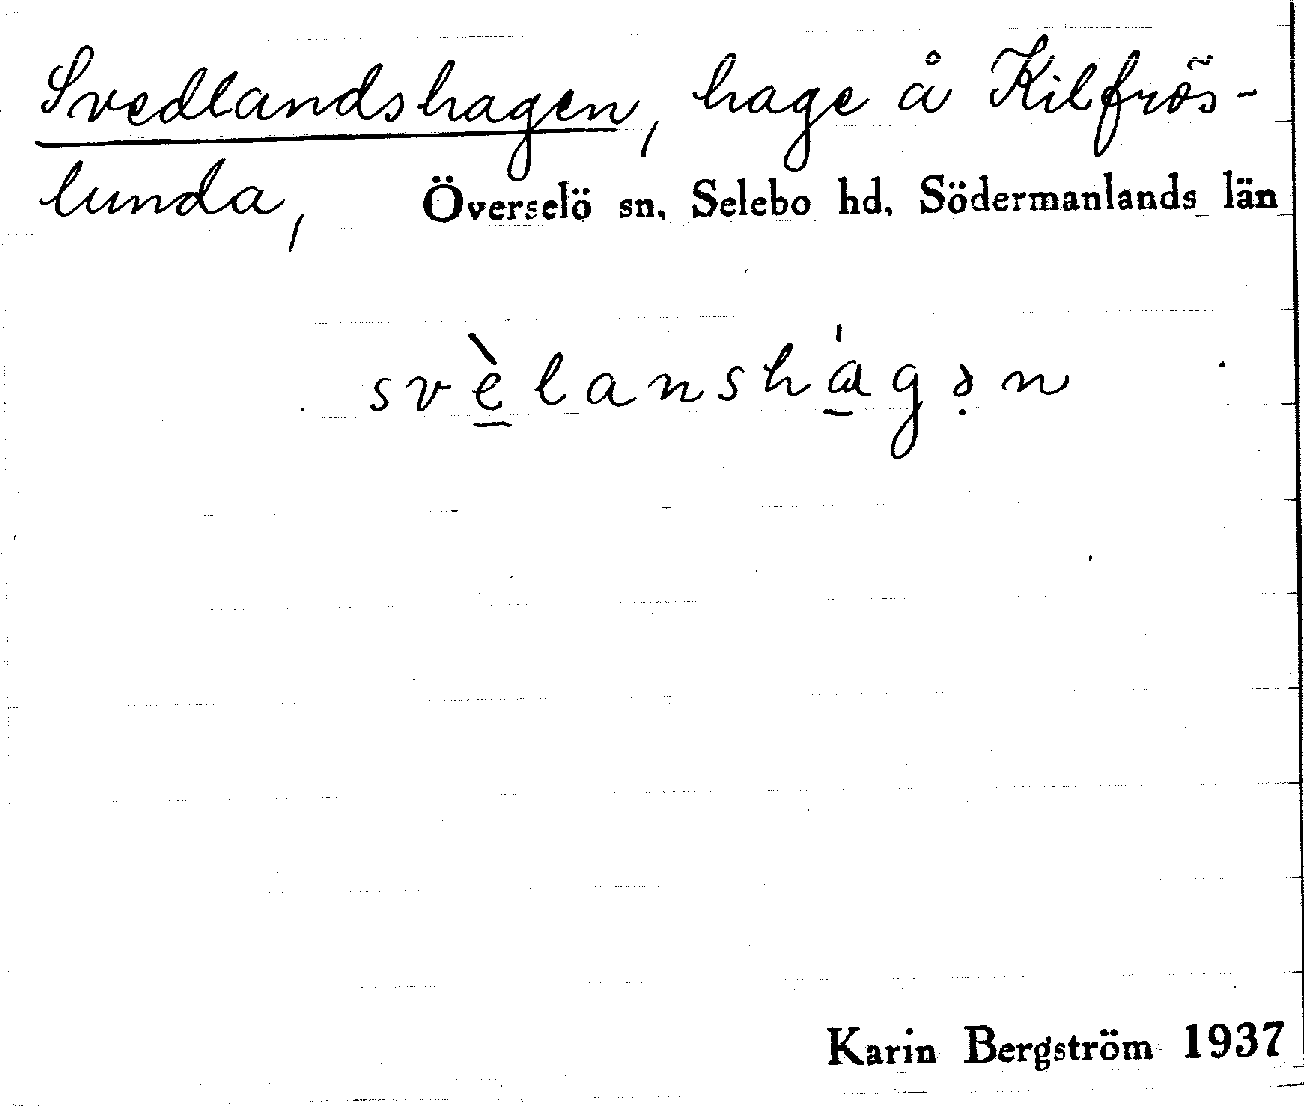 Svedlandshagen, hage å Kilfrös-
lunda, Överselö sn, Selebo hd, Södermanlands län
svè̱lanshá̱gə̣n
Karin Bergström 1937